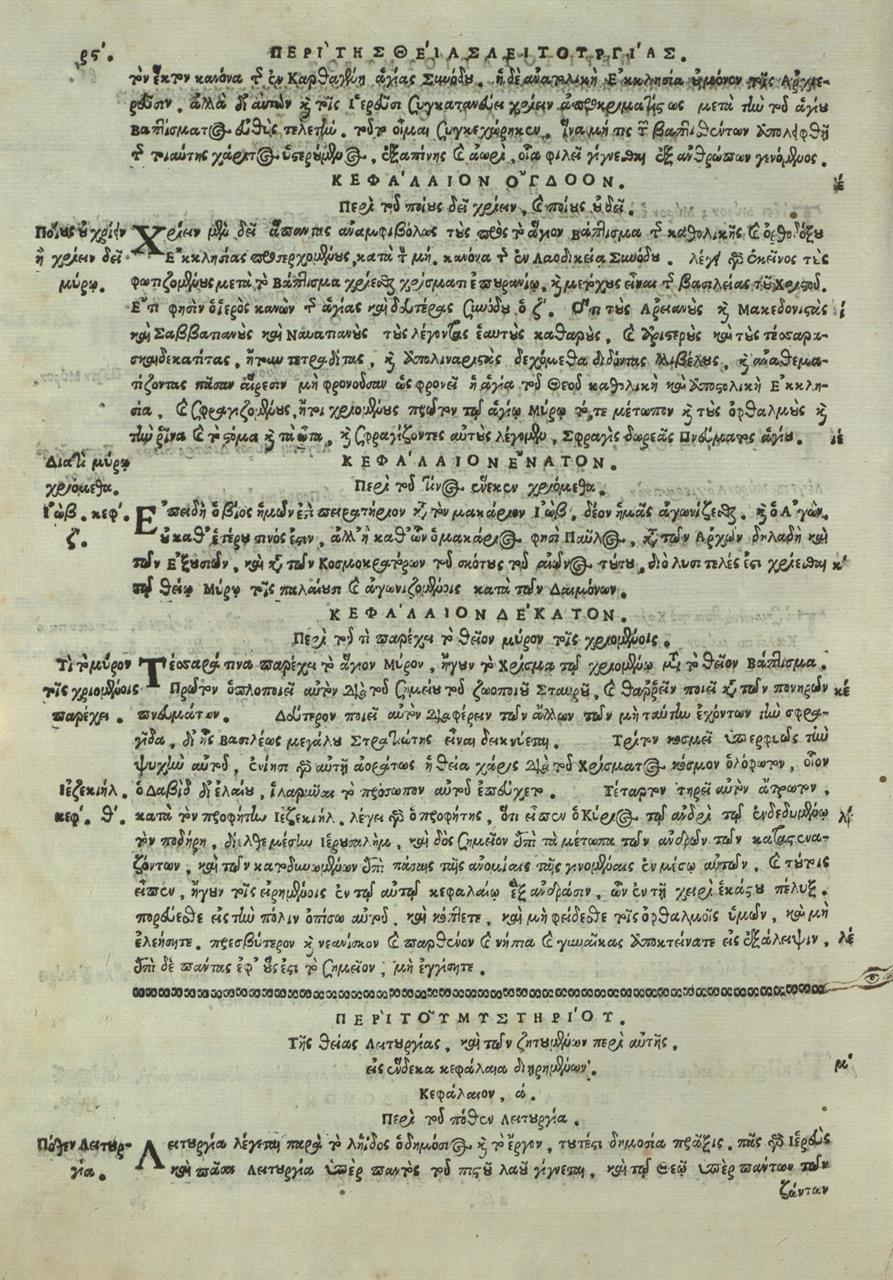 ϟϛʹ. ΠΕΡΙ ΤΗΣ ΘΕΙΑΣ ΛΕΙΤΟΥΡΓΙΑΣ.
τὸν ἕκτον κανόνα τῆς ἐν Καρθαγένῃ ἁγίας Συνόδου. ἡ δὲ ἀνατολικὴ Ἐκκλησία οὐ μόνον τοῖς Ἀρχιε-
ρεῦσιν, ἀλλὰ δι' αὐτῶν καὶ τοῖς Ἱερεῦσι συγκατανεύει χρίειν μετὰ τὴν τοῦ ἁγίου
βαπτίσματος εὐθὺς τελετήν. τοῦτο οἶμαι συγκεχώρηκεν, ἵνα μή τις τῶν βαπτισθέντων ὑπολειφθῇ
τῆς τοιαύτης χάριτος ὑστερούμενος, ἐξαπίνης καὶ ἀωρὶ, οἷα φιλεῖ γίγνεσθαι ἐξ ἀνθρώπων γενόμενος.
ΚΕΦΑΛΑΙΟΝ ΟΓΔΟΟΝ.
Περὶ τοῦ ποίους δεῖ χρίειν, καὶ ποίους οὐ δεῖ.
Ποίους οὐ χρίειν
ἢ χρίειν δεῖ
μύρῳ.
Χρίειν μὲν δεῖ ἅπαντας ἀναμφιβόλως τοὺς πρὸς τὸ ἅγιον βάπτισμα τῆς καθολικῆς καὶ ὀρθοδόξου
Ἐκκλησίας προσερχομένους, κατὰ τὸν μή. κανόνα τῆς ἐν Λαοδικείᾳ Συνόδου. λέγει γὰρ ἐκεῖνος τοὺς
φωτιζομένους μετὰ τὸ Βάπτισμα χρίεσθαι χρίσματι ἐπουρανίῳ, καὶ μετόχους εἶναι τῆς βασιλείας τοῦ Χριστοῦ.
Ἔτι φησὶν ὁ ἱερὸς κανὼν τῆς ἁγίας καὶ δευτέρας Συνόδου ὁ ζʹ. Ὅτι τοὺς Ἀρειανοὺς καὶ Μακεδονιανοὺς
καὶ Σαββατιανοὺς καὶ Ναυατιανοὺς τοὺς λέγοντας ἑαυτοὺς καθαροὺς, καὶ ἀριστεροὺς καὶ τοὺς τεσσαρε-
σκαιδεκατίτας, ἤτουν τετραδίτας, καὶ Ἀπολιναριστὰς δεχόμεθα διδόντας λιβέλους, καὶ ἀναθεμα-
τίζοντας πᾶσαν αἵρεσιν μὴ φρονοῦσαν ὡς φρονεῖ ἡ ἁγία τοῦ Θεοῦ καθολικὴ καὶ Ἀποστολικὴ Ἐκκλη-
σία, καὶ σφραγιζομένους, ἤτοι χριομένους πρῶτον τῷ ἁγίῳ Μύρῳ τό, τε μέτωπον καὶ τοὺς ὀφθαλμοὺς καὶ
τὴν ῥῖνα καὶ τὸ στόμα καὶ τὰ ὦτα, καὶ σφραγίζοντες αὐτοὺς λέγομεν, Σφραγὶς δωρεᾶς Πνεύματος ἁγίου.
ΚΕΦΑΛΑΙΟΝ ΕΝΑΤΟΝ.
Περὶ τοῦ τίνος ἕνεκεν χριόμεθα.
Διατί μύρῳ
χριόμεθα.
Ἰώβ. κεφʹ.
ζʹ.
Ἐπειδὴ ὁ βίος ἡμῶν ἐστὶ πειρατήριον κατὰ τὸν μακάριον Ἰὼβ, δέον ἡμᾶς ἀγωνίζεσθαι. καὶ ὁ Ἀγὼν
οὐ καθ' ἑτέρου τινός ἐστιν, ἀλλ' ἢ καθ' ὧν ὁ μακάριός φησι Παῦλος, κατὰ τῶν Ἀρχῶν δηλαδὴ καὶ
τῶν Ἐξουσιῶν, καὶ κατὰ τῶν Κοσμοκρατόρων τοῦ σκότους τοῦ αἰῶνος τούτου, διὸ λυσιτελές ἐστι χρίεσθαι
τῷ θείῳ Μύρῳ τοῖς παλαίουσι καὶ ἀγωνιζομένοις κατὰ τῶν Δαιμόνων.
ΚΕΦΑΛΑΙΟΝ ΔΕΚΑΤΟΝ.
Περὶ τοῦ τί παρέχει τὸ θεῖον μύρον τοῖς χριομένοις.
Τί τὸ μύρον
τοῖς χριομένοις
παρέχει.
Τέσσαρά τινα παρέχει τὸ ἅγιον Μύρον, ἤγουν τὸ Χρίσμα τῷ χριομένῳ μετὰ τὸ θεῖον Βάπτισμα.
Πρῶτον ὁπλοποιεῖ αὐτὸν διὰ τοῦ σημείου τοῦ ζωοποιοῦ Σταυροῦ, καὶ θαῤῥεῖν ποιεῖ κατὰ τῶν πονηρῶν
πνευμάτων. Δεύτερον ποιεῖ αὐτὸν διαφέρειν τῶν ἄλλων τῶν μὴ ταύτην ἐχόντων τὴν σφρα-
γῖδα, δι' ἧς βασιλέως μεγάλου Στρατιώτης εἶναι δεικνύεται. Τρίτον κοσμεῖ ὑπερφυῶς τὴν
ψυχὴν αὐτοῦ, ἐνίησι γὰρ αὐτῇ ἀοράτως ἡ θεία χάρις διὰ τοῦ Χρίσματος κόσμον ὁλόφωτον, οἷον
ὁ Δαβὶδ δι' ἐλαίου, ἱλαρῦναι τὸ πρόσωπον αὐτοῦ ἐπεύχεται. Τέταρτον τηρεῖ αὐτὸν ἄτρωτον,
Ἰεζεκιήλ.
κεφʹ. θʹ.
κατὰ τὸν προφήτην Ἰεζεκιήλ. λέγει γὰρ ὁ προφήτης, ὅτι εἶπεν ὁ Κύριος τῷ ἀνδρὶ τῷ ἐνδεδυμένῳ
τὸν ποδήρη, δίελθε μέσην Ἱερουσαλὴμ, καὶ δὸς σημεῖον ἐπὶ τὰ μέτωπα τῶν ἀνδρῶν τῶν καταστενα-
ζόντων, καὶ τῶν κατωδυνωμένων ἐπὶ πάσαις ταῖς ἀνομίαις ταῖς γινομέναις ἐν μέσῳ αὐτῶν, καὶ τούτοις
εἶπεν, ἤγουν τοῖς εἰρημένοις ἐν τῷ αὐτῷ κεφαλαίῳ ἓξ ἀνδράσιν, ὧν ἐν τῇ χειρὶ ἑκάστου πέλυξ.
πορεύεσθε εἰς τὴν πόλιν ὀπίσω αὐτοῦ, καὶ κόπτετε, καὶ μὴ φείδεσθε τοῖς ὀφθαλμοῖς ὑμῶν, καὶ μὴ
ἐλεήσητε. πρεσβύτερον καὶ νεανίσκον καὶ παρθένον καὶ νήπια καὶ γυναῖκας ἀποκτείνατε εἰς ἐξάλειψιν,
ἐπὶ δὲ πάντας ἐφ' οὓς ἐστι τὸ σημεῖον, μὴ ἐγγίσητε.
ΠΕΡΙ ΤΟΥ ΜΥΣΤΗΡΙΟΥ.
Τῆς θείας Λειτουργίας, καὶ τῶν ζητουμένων περὶ αὐτῆς,
εἰς ἕνδεκα κεφάλαια διῃρημένων.
Κεφάλαιον, ά.
Περὶ τοῦ πόθεν Λειτουργία.
Πόθεν Λειτουρ-
γία.
Λειτουργία λέγεται παρὰ τὸ λήϊδος ὁ δημόσιος καὶ τὸ ἔργον, τουτέστι δημοσία πρᾶξις. πᾶς γὰρ Ἱερεὺς
καὶ πᾶσα Λειτουργία ὑπὲρ παντὸς τοῦ πιστοῦ λαοῦ γίγνεται, καὶ τῷ Θεῷ ὑπὲρ πάντων τῶν
ζώντων